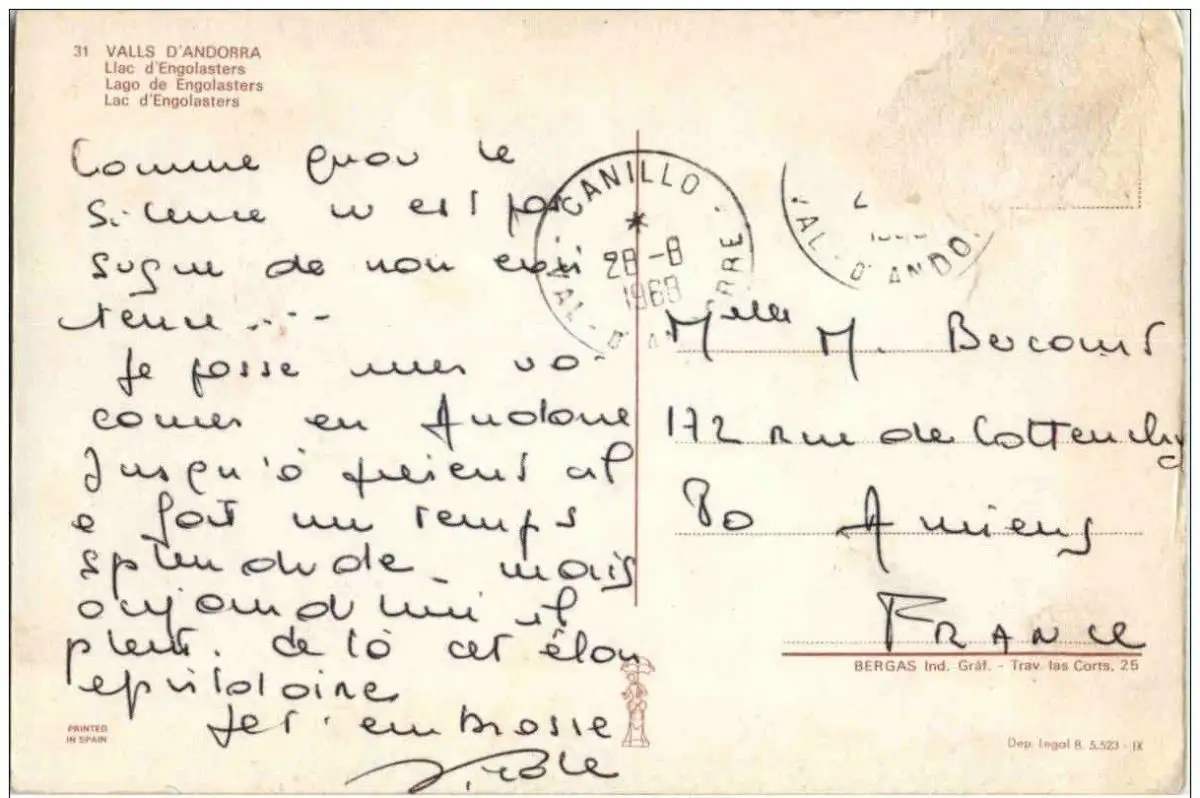 31 VALLS D'ANDORRA
Llac d'Engolasters
Lago de Engolasters
Lac d'Engolasters
Comme quoi le
silence n'est pas
signe de non exis
tence....
Je passe mes va-
cances en Andorre
jusqu'à présent il
a fait un temps
splendide - mais
aujourd'hui il
pleut. de là cet élan
épistolaire
Je t'embrasse
Nicole
CANILLO
28-8
1968
VAL-D'A RRE
VAL-D'ANDO
Melle M. Bocourt
172 rue de Cottenchy
80 Amiens
FRANCE
BERGAS Ind. Gráf. - Trav. las Corts, 25
PRINTED
IN SPAIN
Dep. legal B. 5.523 - IX